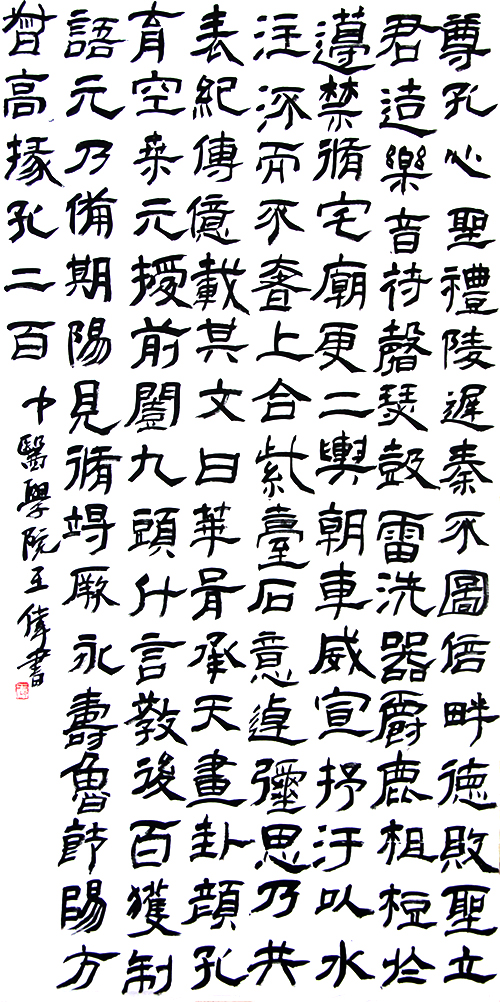 尊孔心聖禮陵遲秦不圖倍畔德敗聖立
君造樂音待磬瑟鼓雷洗器爵鹿柤梪於
禁脩宅廟更二輿朝車威宣抒汙以水
注流而不奢上合紫臺石意逴彌思乃共
表紀傳億載其文曰華胥承天畫卦顏孔
育空桒元授前闓九頭什言教後百獲制
語元乃備期陽見脩厥永壽魯節陽方
曾高掾孔二百
中醫學院王偉書